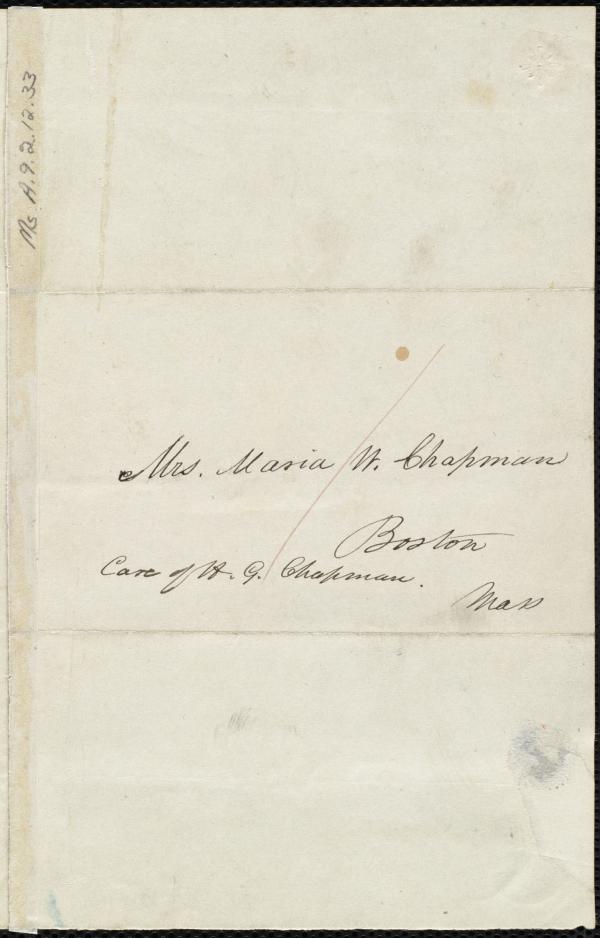 Ms. A.9.2.12.33
Mrs. Maria W. Chapman
Boston
Care of H. G. Chapman.
Mass